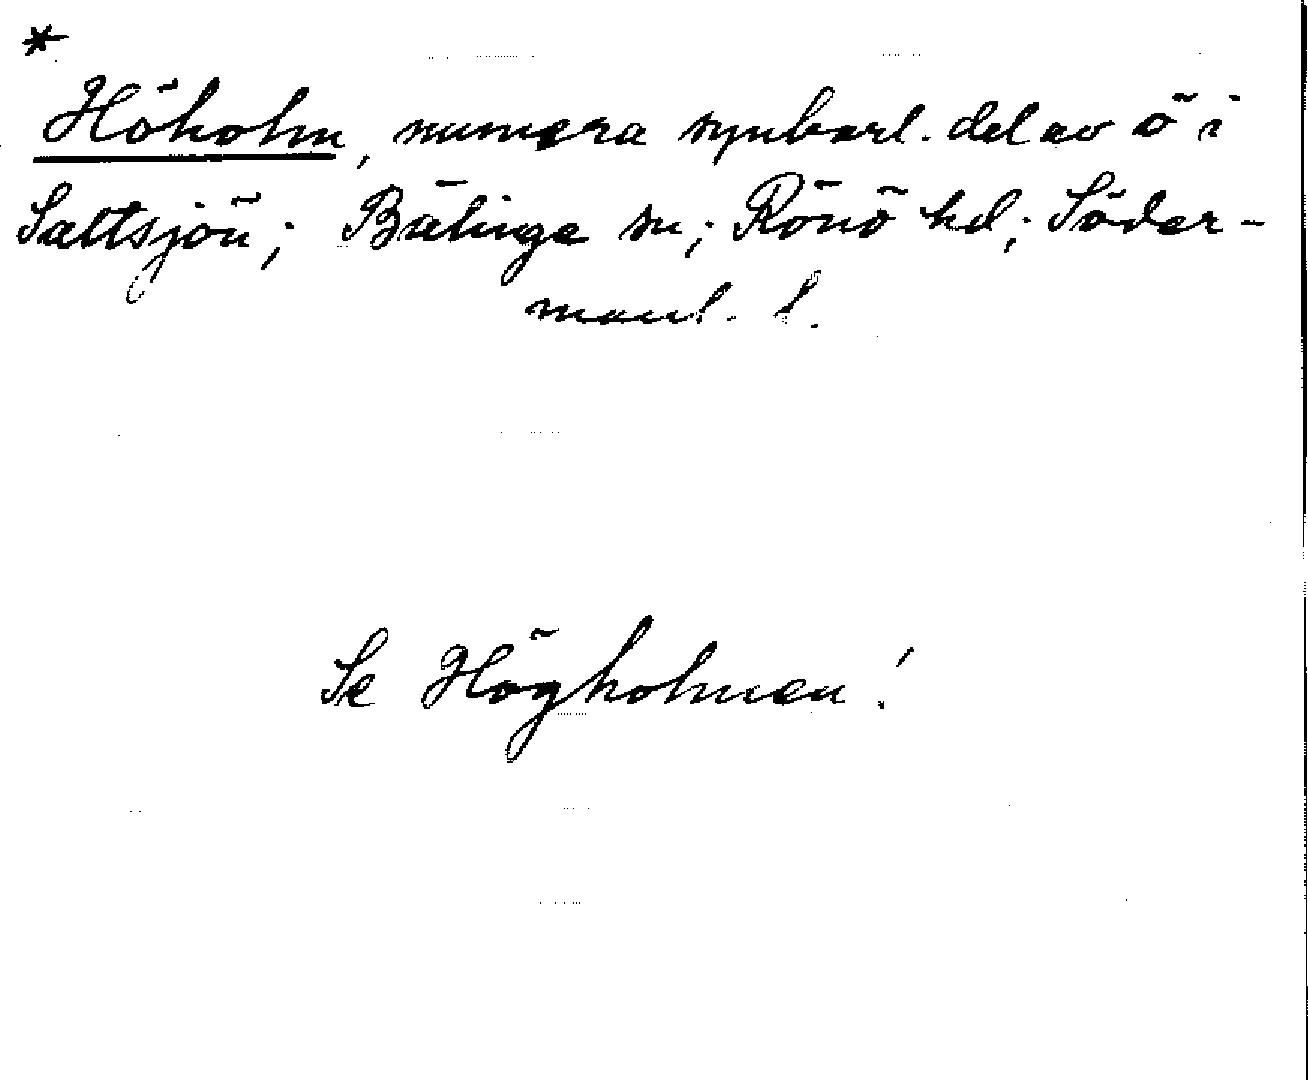 *
Höholm, numera synbarl. del av ö i
Saltsjön; Bälinge sn; Rönö hd; Söder-
manl. l.
Se Högholmen!